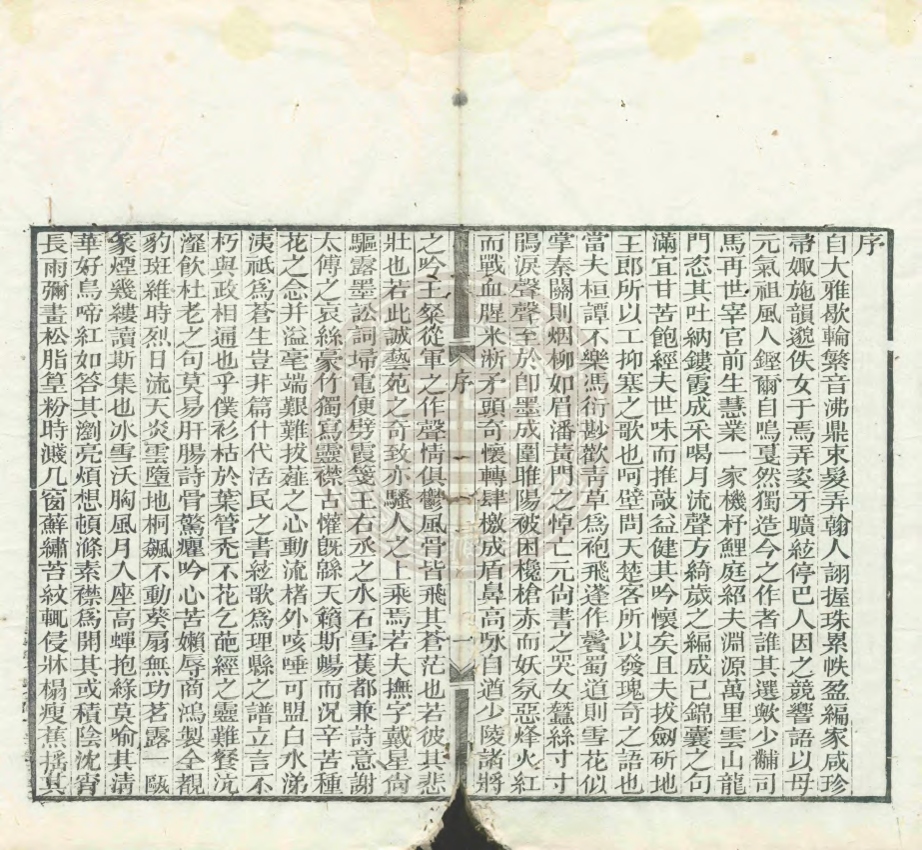 序
自大雅歇輪繁音沸鼎束髮弄翰人詡握珠累帙盈編家咸珍
帚娵施韻貌佚女于焉弄姿牙曠絃停巴人因之競響語以母
元氣祖風人鏗爾自鳴戛然獨造今之作者誰其選歟少黼司
馬再世宰官前生慧業一家機杼鯉庭紹夫淵源萬里雲山龍
門恣其吐納鏤霞成采喝月流聲方綺歲之編成已錦囊之句
滿宜甘苦飽經夫世味而推敲益健其吟懷矣且夫拔劒斫地
王郎所以工抑塞之歌也呵壁問天楚客所以發瑰奇之語也
當夫桓譚不樂馮衍尠歡青草爲袍飛蓬作鬢蜀道則雪花似
掌秦關則烟柳如眉潘黃門之悼亡元尙書之哭女蠶絲寸寸
鵑淚聲聲至於卽墨成圍睢陽被困欃槍赤而妖氛惡烽火紅
而戰血腥米淅矛頭奇懷轉肆檄成盾鼻高咏自遒少陵諸將
之吟王粲從軍之作聲情俱鬱風骨皆飛其蒼茫也若彼其悲
壯也若此誠藝苑之奇致亦騷人之上乘焉若夫撫字戴星尙
驅露墨訟詞埽電便劈霞箋王右丞之水石雪蕉都兼詩意謝
太傅之哀絲豪竹獨寫靈襟古懽旣緜天籟斯暢而况辛苦種
花之念幷溢毫端艱難拔薤之心動流楮外咳唾可盟白水涕
洟祇爲蒼生豈非篇什代活民之書絃歌爲理縣之譜立言不
朽與政相通也乎僕衫枯於葉管禿不花乞葩經之靈難餐沆
瀣飮杜老之句莫易肝腸詩骨驚癯吟心苦嬾辱商鴻製全覩
豹斑維時烈日流天炎雲墮地桐飆不動葵扇無功茗露一甌
篆煙幾縷讀斯集也冰雪沃胸風月入座高蟬抱綠莫喻其淸
華好鳥啼紅如答其瀏亮煩想頓滌素襟爲開其或積陰沈宵
長雨彌晝松脂篁粉時濺几窗蘚繡苔紋輒侵牀榻瘦蕉搖其
序
一